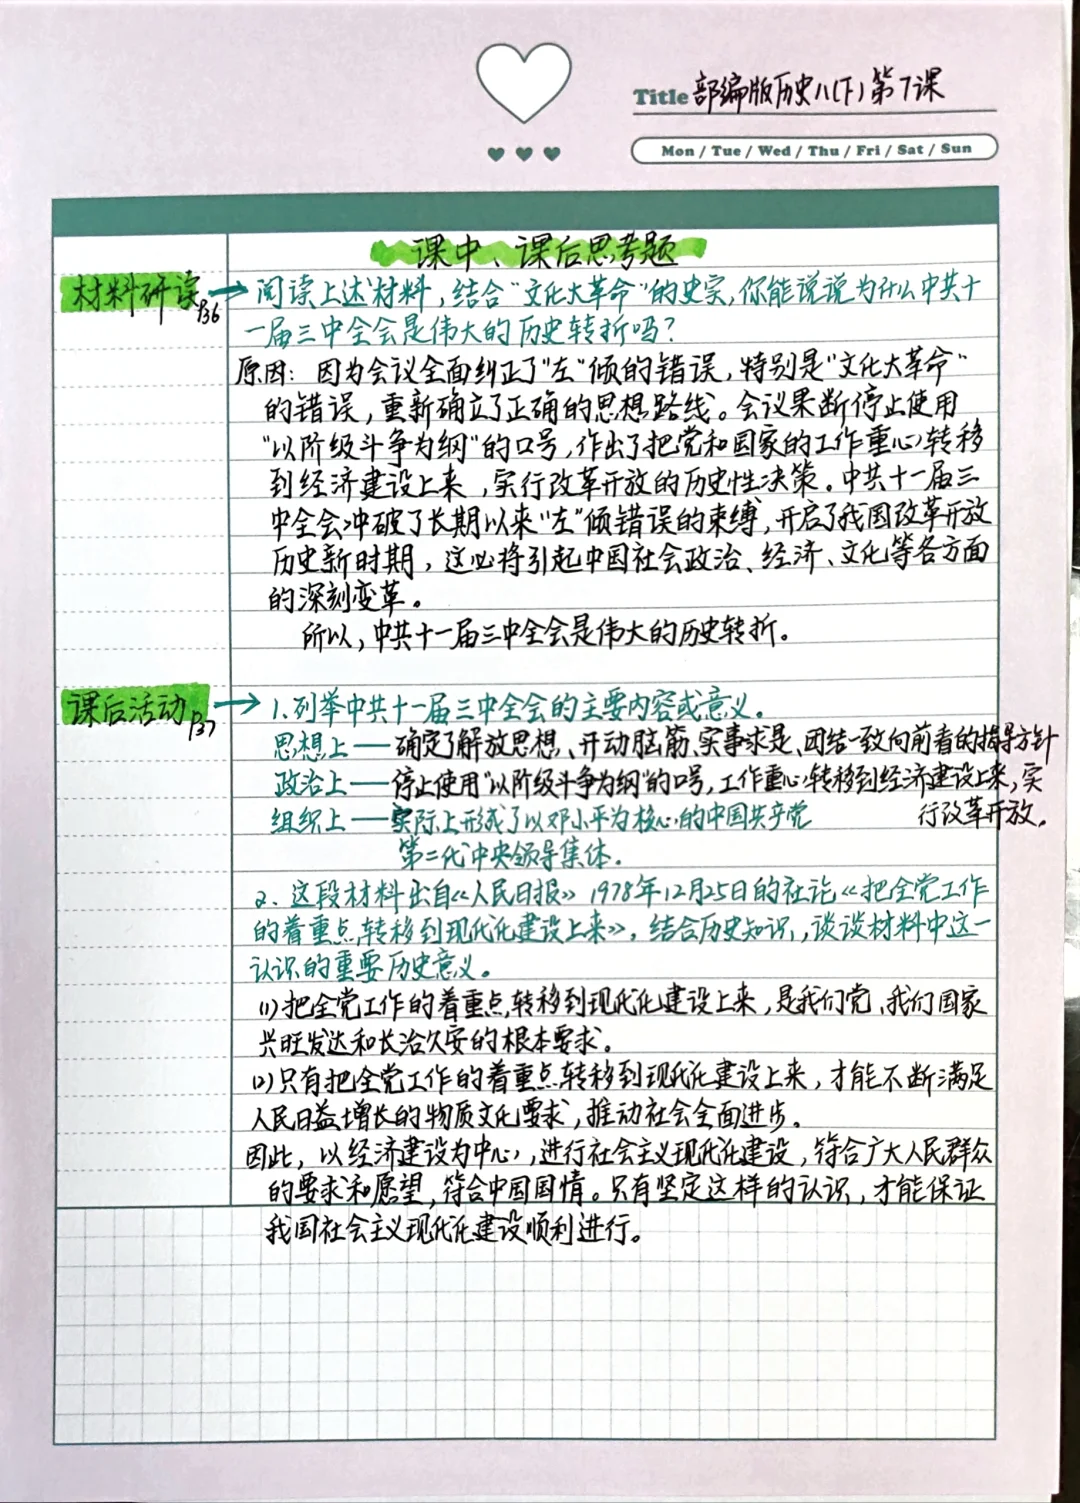 Title 部编版历史八(下)第7课
Mon / Tue / Wed / Thu / Fri / Sat / Sun
课中、课后思考题
材料研读 P36 → 阅读上述材料，结合“文化大革命”的史实，你能说说为什么中共十
一届三中全会是伟大的历史转折吗？
原因：因为会议全面纠正了“左”倾的错误，特别是“文化大革命”
的错误，重新确立了正确的思想路线。会议果断停止使用
“以阶级斗争为纲”的口号，作出了把党和国家的工作重心转移
到经济建设上来，实行改革开放的历史性决策。中共十一届三
中全会冲破了长期以来“左”倾错误的束缚，开启了我国改革开放
历史新时期，这必将引起中国社会政治、经济、文化等各方面
的深刻变革。
所以，中共十一届三中全会是伟大的历史转折。
课后活动 P37 → 1.列举中共十一届三中全会的主要内容或意义。
思想上——确定了解放思想、开动脑筋、实事求是、团结一致向前看的指导方针
政治上——停止使用“以阶级斗争为纲”的口号，工作重心转移到经济建设上来，实
行改革开放。
组织上——实际上形成了以邓小平为核心的中国共产党
第二代中央领导集体。
2.这段材料出自《人民日报》1978年12月25日的社论《把全党工作
的着重点转移到现代化建设上来》，结合历史知识，谈谈材料中这一
认识的重要历史意义。
(1)把全党工作的着重点转移到现代化建设上来，是我们党、我们国家
兴旺发达和长治久安的根本要求。
(2)只有把全党工作的着重点转移到现代化建设上来，才能不断满足
人民日益增长的物质文化要求，推动社会全面进步。
因此，以经济建设为中心，进行社会主义现代化建设，符合广大人民群众
的要求和愿望，符合中国国情。只有坚定这样的认识，才能保证
我国社会主义现代化建设顺利进行。